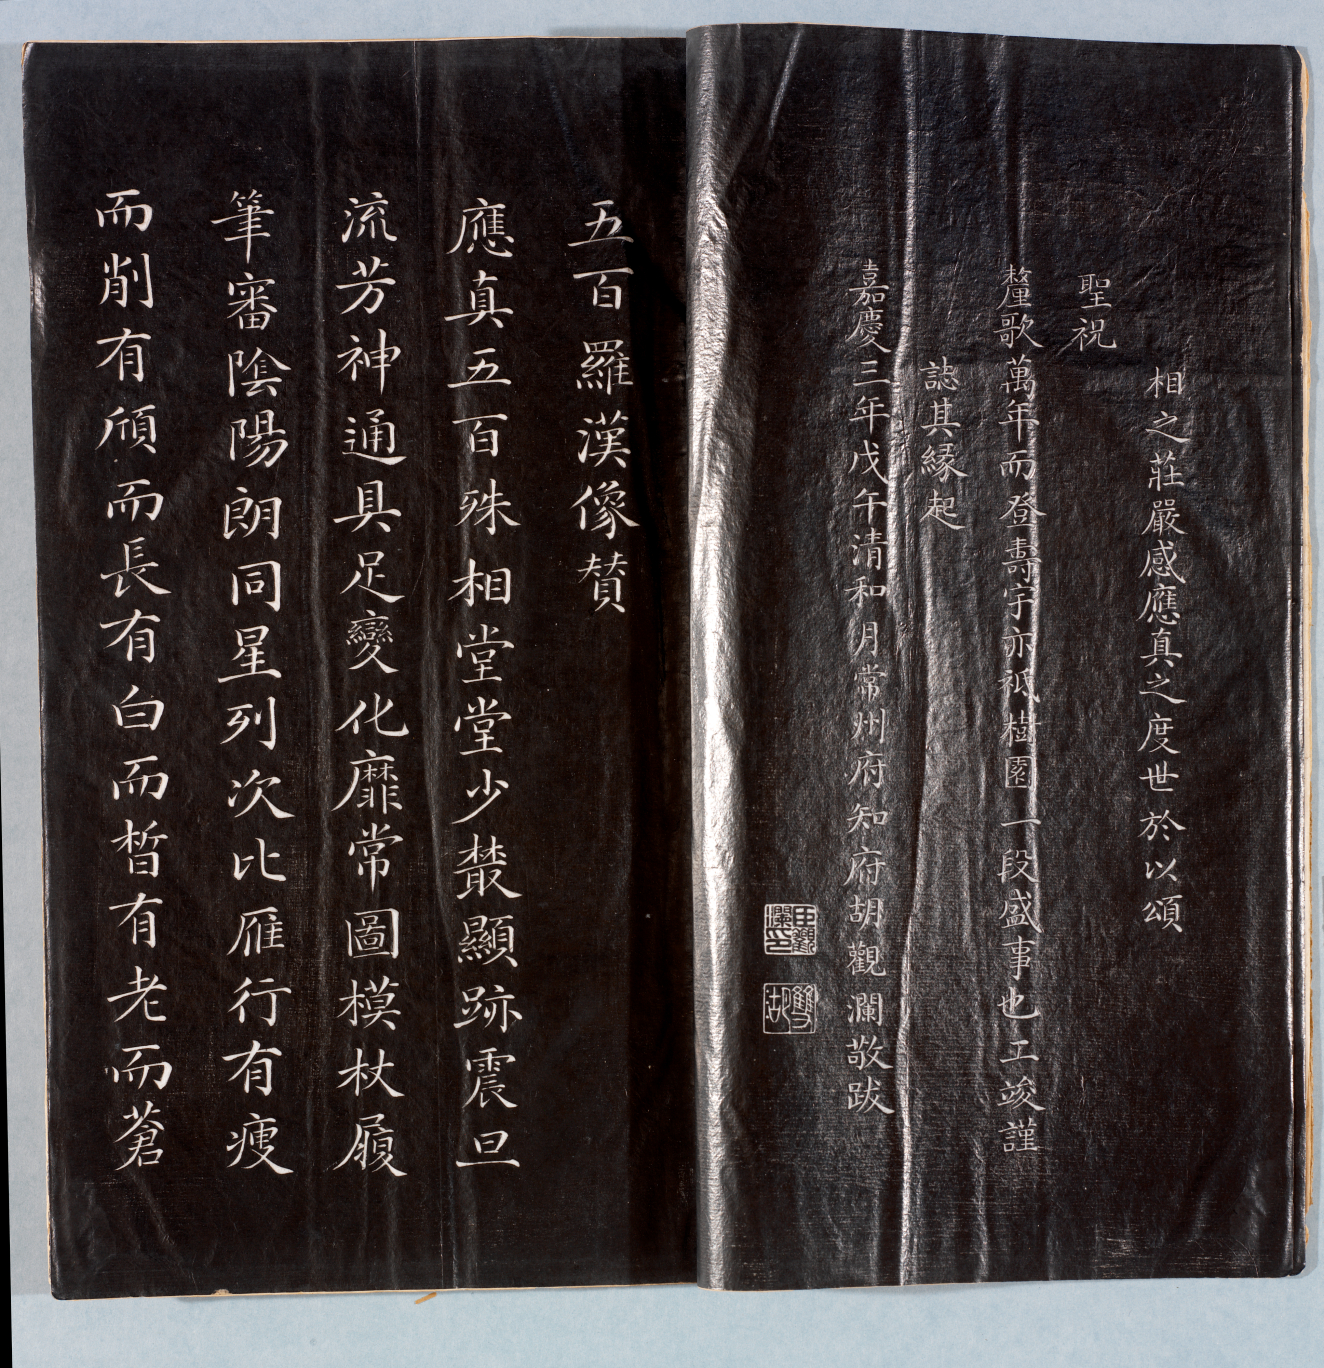 相之莊嚴感應真之度世於以頌
聖祝
釐歌萬年而登壽宇亦祇樹園一段盛事也工竣謹
誌其緣起
嘉慶三年戊午清和月常州府知府胡觀瀾敬跋
臣觀瀾印
雙湖
五百羅漢像贊
應真五百殊相堂堂少叢顯跡震旦
流芳神通具足變化靡常圖模杖履
筆審陰陽朗同星列次比雁行有瘦
而削有頎而長有白而晳有老而蒼